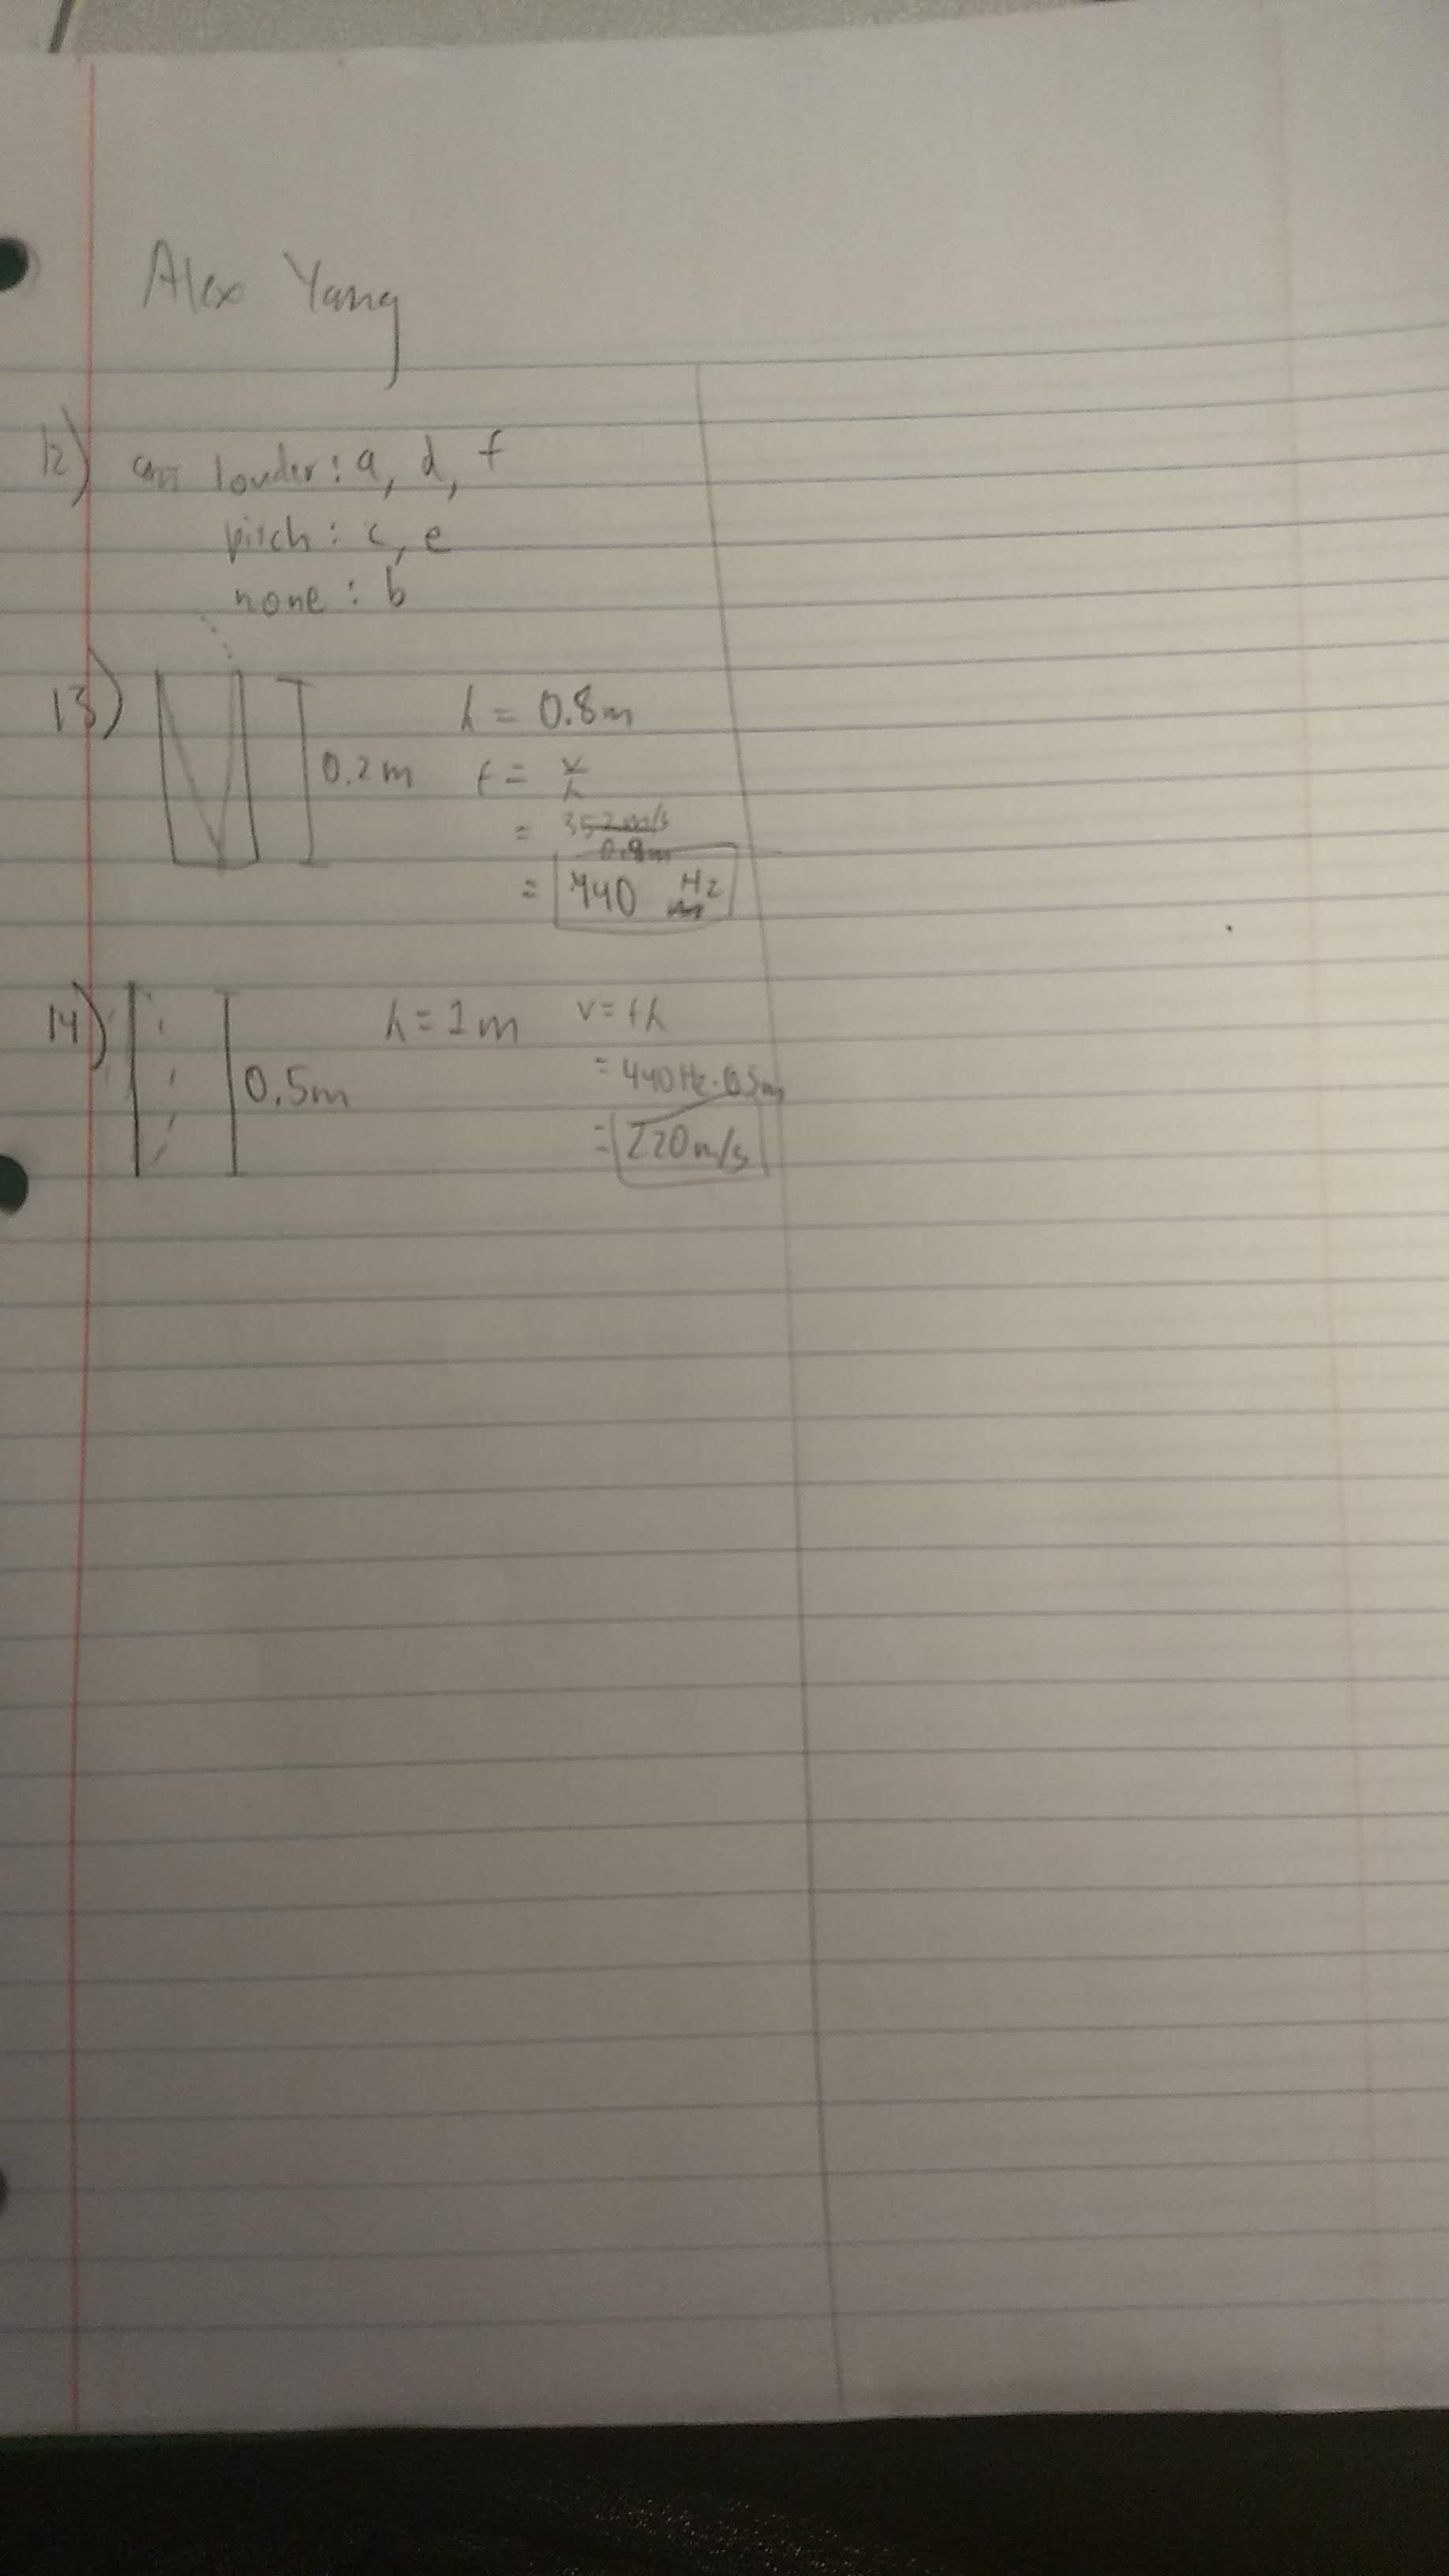 Alex Yang
12) louder: a, d, f
pitch: c, e
none: b
13) 0.2m λ = 0.8m
f = v/λ
= 352m/s / 0.8m
= 440 Hz
14) 0.5m λ = 1m v = fλ
= 440Hz · 0.5m
= 220m/s